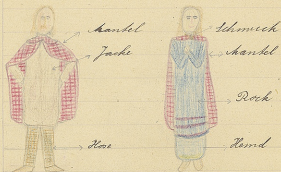 Mantel
Jacke
Hose
Schmuck
Mantel
Rock
Hemd